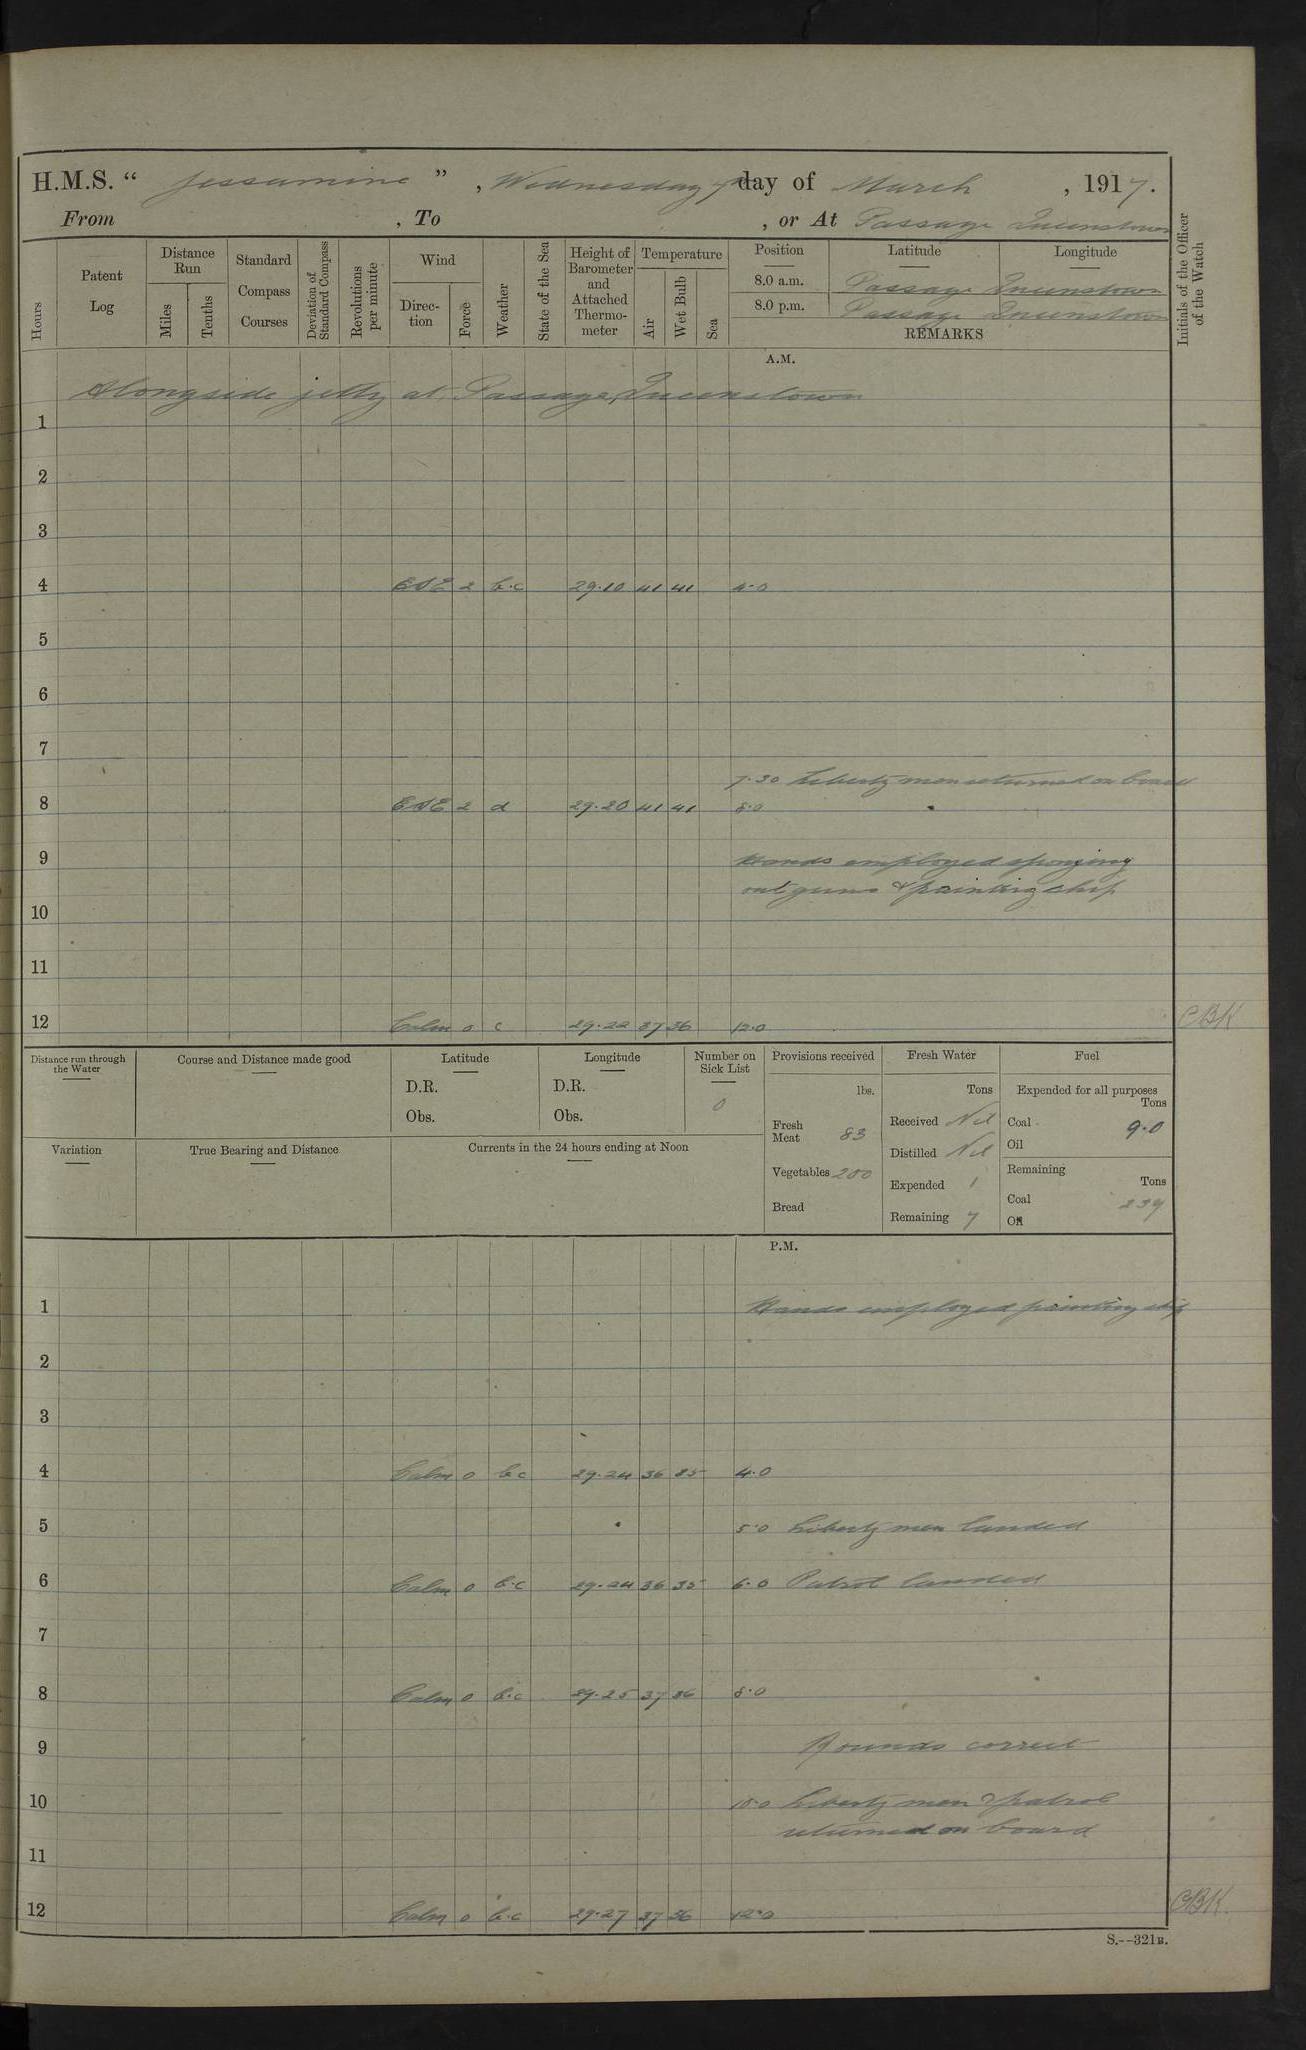 H.M.S. “ Jessamine ” , Wednesday 7 day of March , 1917.
From , To , or At Passage Queenstown
Hours
Patent Log
Distance Run
Miles
Tenths
Standard Compass Courses
Deviation of Standard Compass
Revolutions per minute
Wind
Direc-tion
Force
Weather
State of the Sea
Height of Barometer and Attached Thermo-meter
Temperature
Air
Wet Bulb
Sea
Position Latitude Longitude
8.0 a.m. Passage Queenstown
8.0 p.m. Passage Queenstown
REMARKS
Initials of the Officer of the Watch
A.M.
Alongside jetty at Passage, Queenstown
1
2
3
4 ESE 2 b.c 29.10 41 41 4.0
5
6
7
7.30 Liberty men returned on board
8 ESE 2 d 29.20 41 41 8.0
9 Hands employed sponging
out guns & painting ship
10
11
12 Calm 0 c 29.22 37 36 12.0 CBK
Distance run through the Water
Course and Distance made good
Latitude
D.R.
Obs.
Longitude
D.R.
Obs.
Number on Sick List
0
Variation
True Bearing and Distance
Currents in the 24 hours ending at Noon
Provisions received
lbs.
Fresh Meat 83
Vegetables 200
Bread
Fresh Water
Tons
Received Nil
Distilled Nil
Expended 1
Remaining 7
Fuel
Expended for all purposes
Tons
Coal 9.0
Oil
Remaining
Tons
Coal 239
Oil
P.M.
1 Hands employed painting ship
2
3
4 Calm 0 b.c 29.24 36 35 4.0
5 5.0 Liberty men landed
6 Calm 0 b.c 29.24 36 35 6.0 Patrol landed
7
8 Calm 0 b.c 29.25 37 36 8.0
9 Rounds correct
10 10.0 Liberty men & patrol
returned on board
11
12 Calm 0 b.c 29.27 37 36 12.0 CBK.
S.--321B.